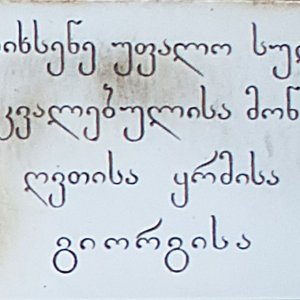 იხსენე უფალო სულ
კვალებულისა მონ
ღვთისა ყრმისა
გიორგისა